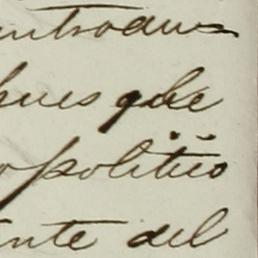 introdu=
pues que
politico
nte del